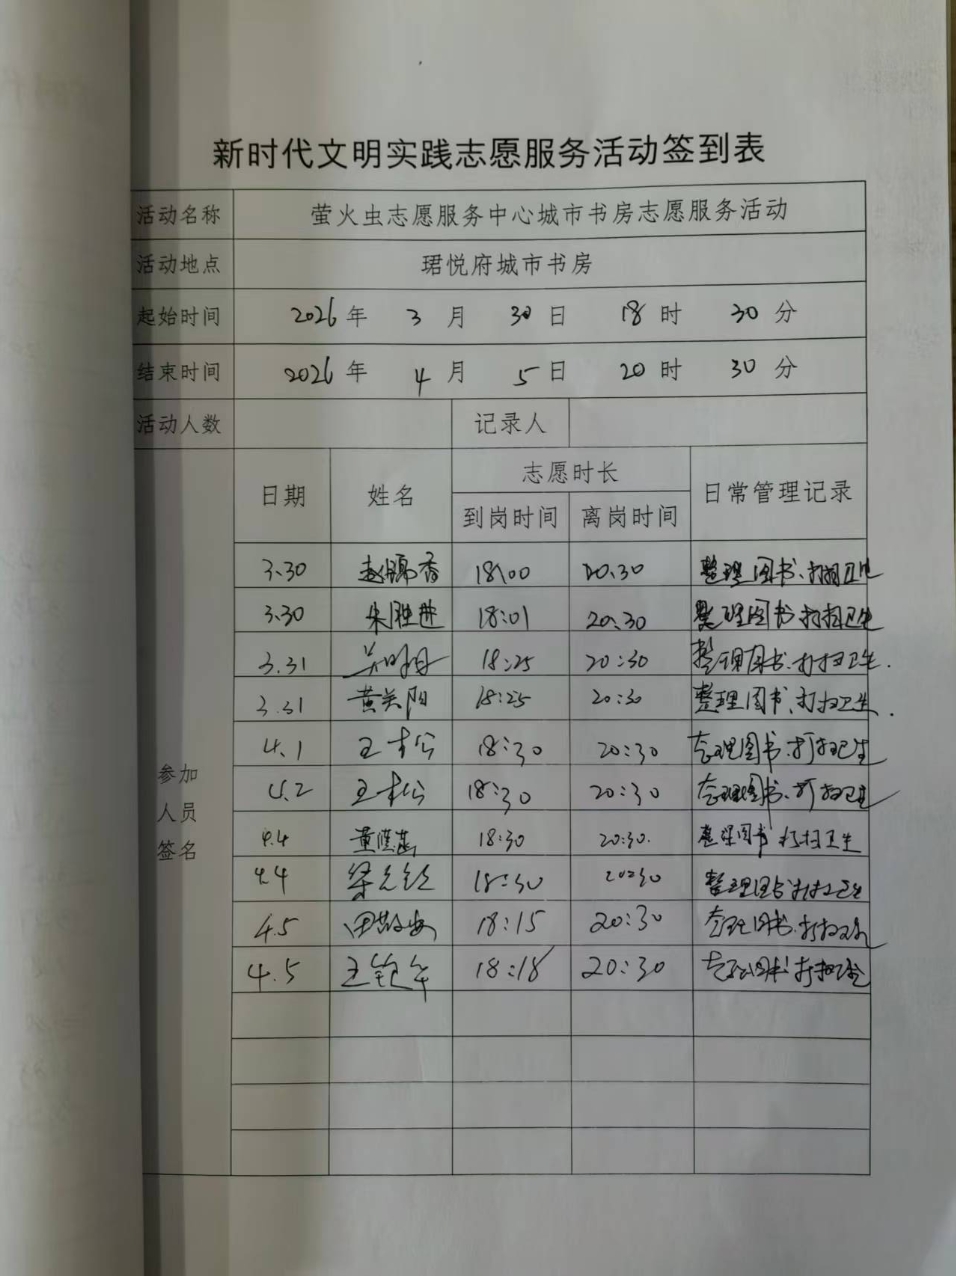 新时代文明实践志愿服务活动签到表
活动名称 萤火虫志愿服务中心城市书房志愿服务活动
活动地点 珺悦府城市书房
起始时间 2026年 3月 30日 18时 30分
结束时间 2026年 4月 5日 20时 30分
活动人数 记录人
日期 姓名 志愿时长 日常管理记录
到岗时间 离岗时间
参加人员签名
3.30 赵锦香 18:00 20:30 整理图书、打扫卫生
3.30 朱胜进 18:01 20:30 整理图书 打扫卫生
3.31 18:25 20:30 整理图书、打扫卫生.
3.31 黄关阳 18:25 20:30 整理图书、打扫卫生.
4.1 王松 18:30 20:30 整理图书、打扫卫生
4.2 王松 18:30 20:30 整理图书、打扫卫生
4.4 董 18:30 20:30. 整理图书 打扫卫生
4.4 梁 18:30 20:30 整理图书 打扫卫生
4.5 田 18:15 20:30 整理图书、打扫卫生
4.5 王 18:18 20:30 整理图书 打扫卫生